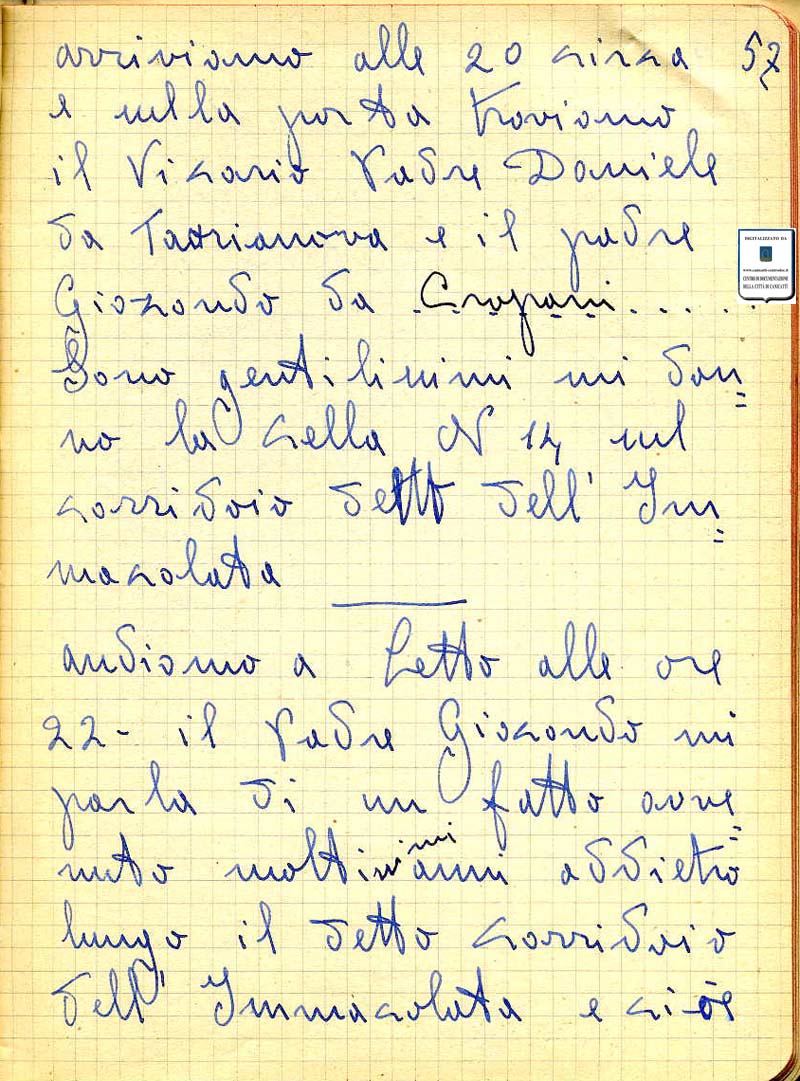 arriviamo alle 20 circa 57
e sulla porta troviamo
il Vicario Padre Daniele
da Taurianova e il padre
Giocondo da Cropani......
Sono gentilissimi mi dan=
no la cella N 14 sul
corridoio detto dell' Im=
macolata
andiamo a Letto alle ore
22- il Padre Giocondo mi
parla di un fatto avve=
nuto moltissimi anni addietro
lungo il detto corridoio
dell' Immacolata e cioè
DIGITALIZZATO DA
www.canicatti-centrodoc.it
CENTRO DI DOCUMENTAZIONE
DELLA CITTÀ DI CANICATTÌ